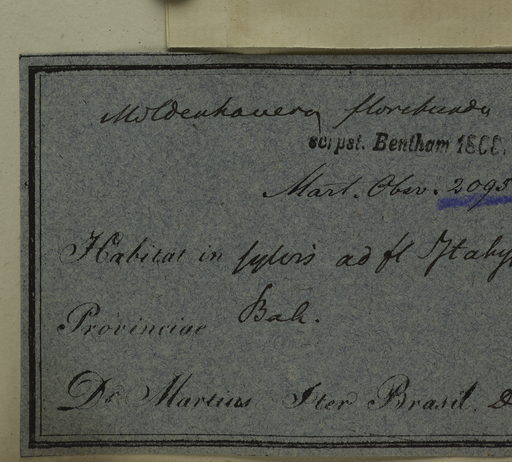 Moldenhauera floribunda
scrpst. Bentham 1868.
Mart. Obsv. 2095
Habitat in sylvis ad fl Itahyp
Provinciae Bah.
Dr Martius Iter Brasil. &